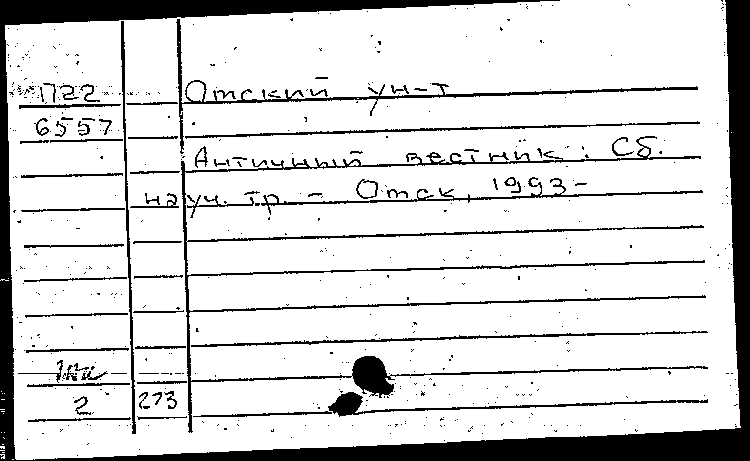 П22 Омский ун-т
6557
Античный вестник: Сб.
науч. тр. - Омск, 1993-
2 273